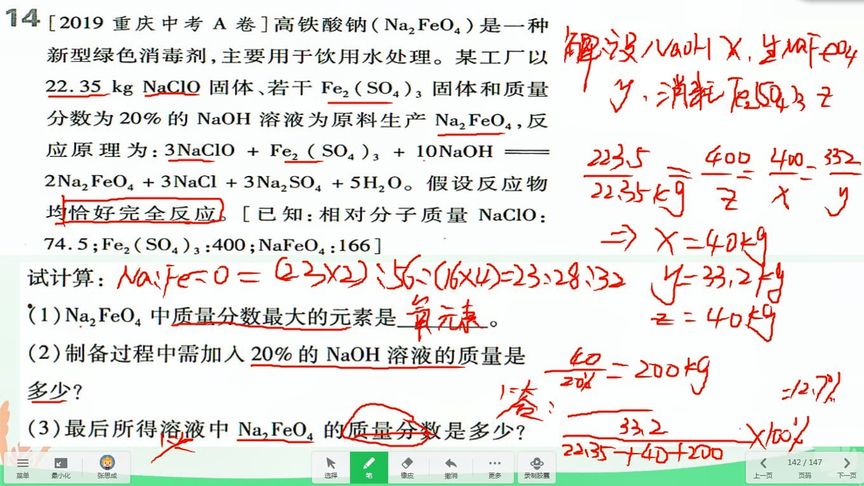 14 [2019 重庆中考 A 卷] 高铁酸钠(Na₂FeO₄)是一种
新型绿色消毒剂,主要用于饮用水处理。某工厂以
22.35 kg NaClO 固体、若干 Fe₂(SO₄)₃ 固体和质量
分数为 20% 的 NaOH 溶液为原料生产 Na₂FeO₄,反
应原理为:3NaClO + Fe₂(SO₄)₃ + 10NaOH ═══
2Na₂FeO₄ + 3NaCl + 3Na₂SO₄ + 5H₂O。假设反应物
均恰好完全反应。[已知:相对分子质量 NaClO:
74.5;Fe₂(SO₄)₃:400;NaFeO₄:166]
试计算: Na:Fe:O = (23×2):56:(16×4)=23:28:32
(1)Na₂FeO₄ 中质量分数最大的元素是 氧元素 。
(2)制备过程中需加入 20% 的 NaOH 溶液的质量是
多少?
(3)最后所得溶液中 Na₂FeO₄ 的质量分数是多少?
解:设NaOH X,生NaFeO₄
y,消耗Fe₂(SO₄)₃ z
223.5/22.35kg = 400/z = 400/x = 332/y
⇒ X=40kg
y=33.2kg
z=40kg
40/20% = 200kg
答:
33.2/22.35+40+200 ×100%
=12.7%
菜单 最小化 张思成 选择 笔 橡皮 撤消 更多 录制胶囊 上一页 142 / 147 页码 下一页